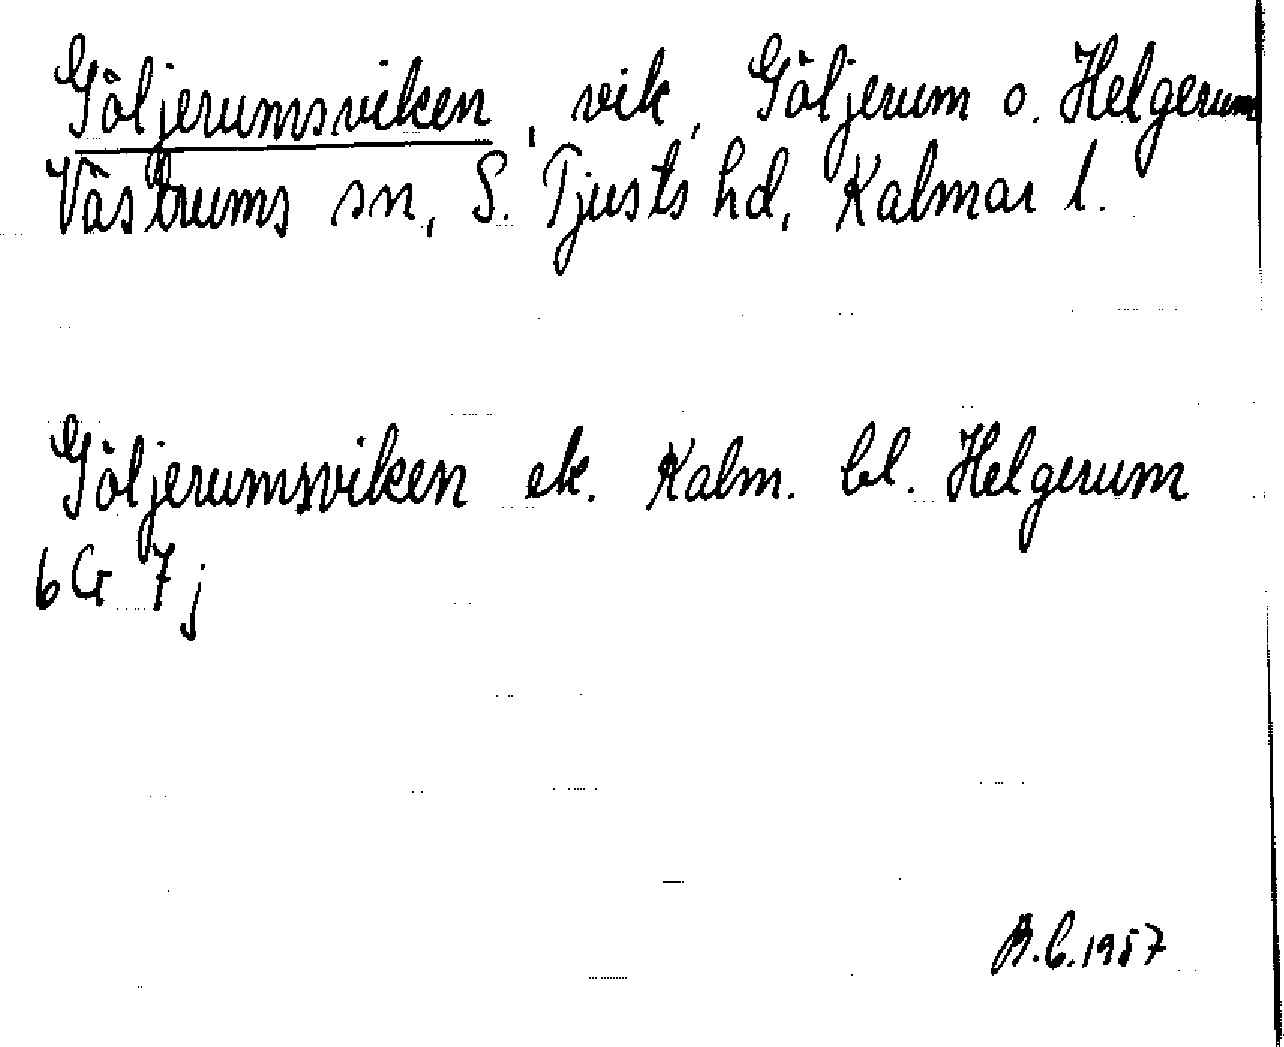 Göljerumsviken, vik, Göljerum o. Helgerum
Västrums sn, S. Tjusts hd, Kalmar l.
Göljerumsviken ek. Kalm. bl. Helgerum
6G 7j
B.C.1957